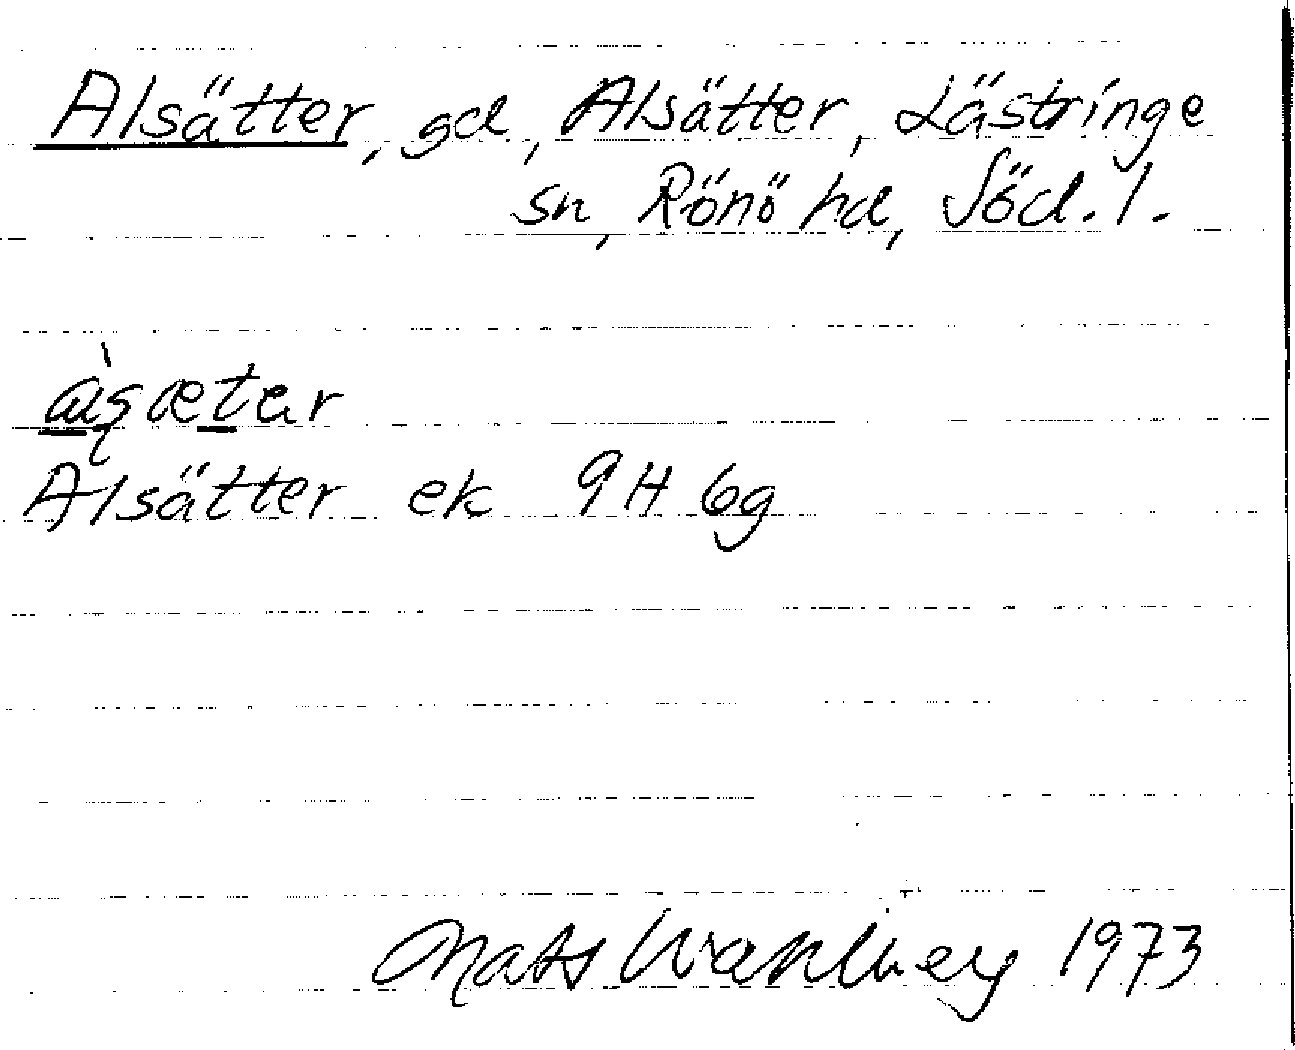 Alsätter, gd, Alsätter, Lästringe
sn, Rönö hd, Söd. l.
Alsätter ek 9H 6g
Mats Wahlberg 1973